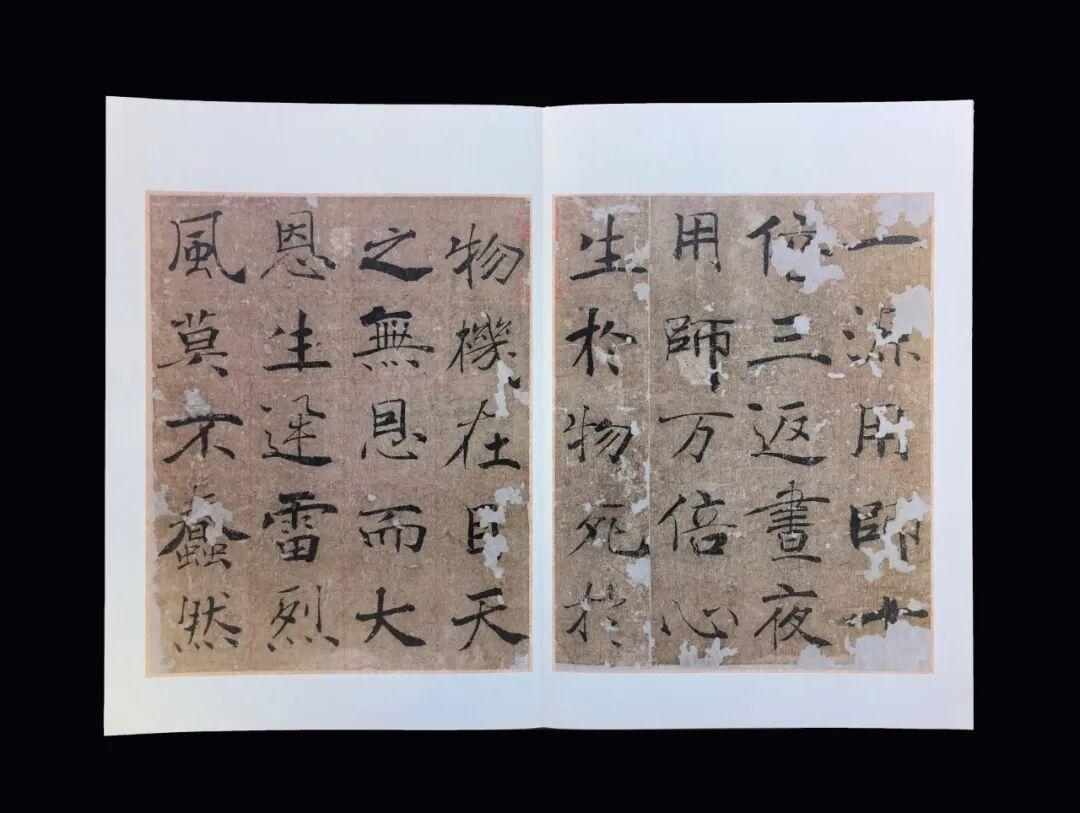 一源用師十
倍三返晝夜
用師万倍心
生於物死於
物機在目天
之無恩而大
恩生迅雷烈
風莫不蠢然